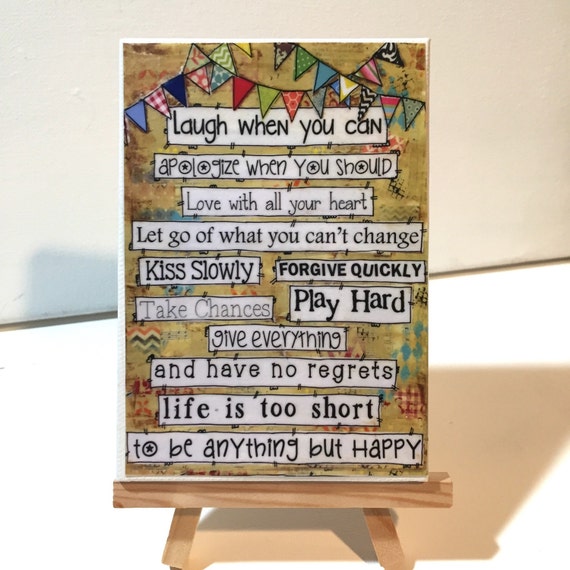 Laugh when you can
apologize when you should
Love with all your heart
Let go of what you can't change
Kiss Slowly FORGIVE QUICKLY
Take Chances Play Hard
give everything
and have no regrets
life is too short
to be anything but HAPPY